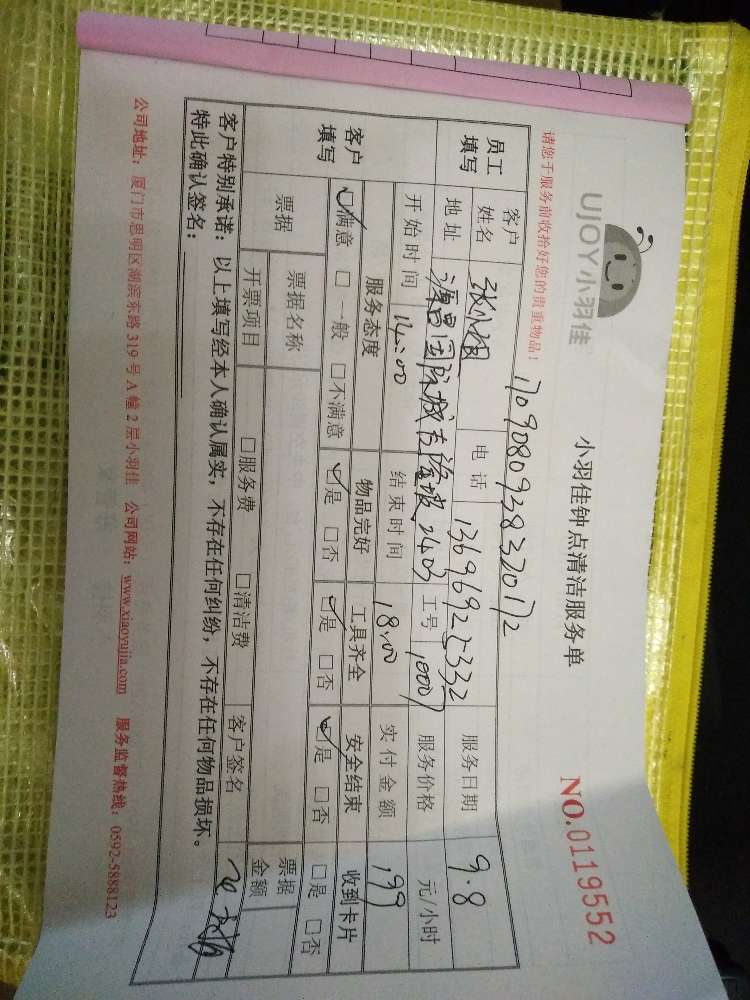 UJOY小羽佳
小羽佳钟点清洁服务单
NO.0119552
请您于服务前收拾好您的贵重物品！
170908093832017
员工填写 客户姓名 电话 13696922332 服务日期 9.8
地址 源昌国际城 2403 工号 10007 服务价格 元/小时
开始时间 14:00 结束时间 18:00 实付金额 199
客户填写 服务态度 物品完好 工具齐全 安全结束 收到卡片
☑满意 □一般 □不满意 ☑是 □否 ☑是 □否 ☑是 □否 □是 □否
票据 票据名称 票据金额
开票项目 □服务费 □清洁费 客户签名
客户特别承诺：以上填写经本人确认属实，不存在任何纠纷，不存在任何物品损坏。
特此确认签名：
公司地址：厦门市思明区湖滨东路 319 号 A 幢 2 层小羽佳 公司网站：www.xiaoyujia.com 服务监督热线：0592-5888123